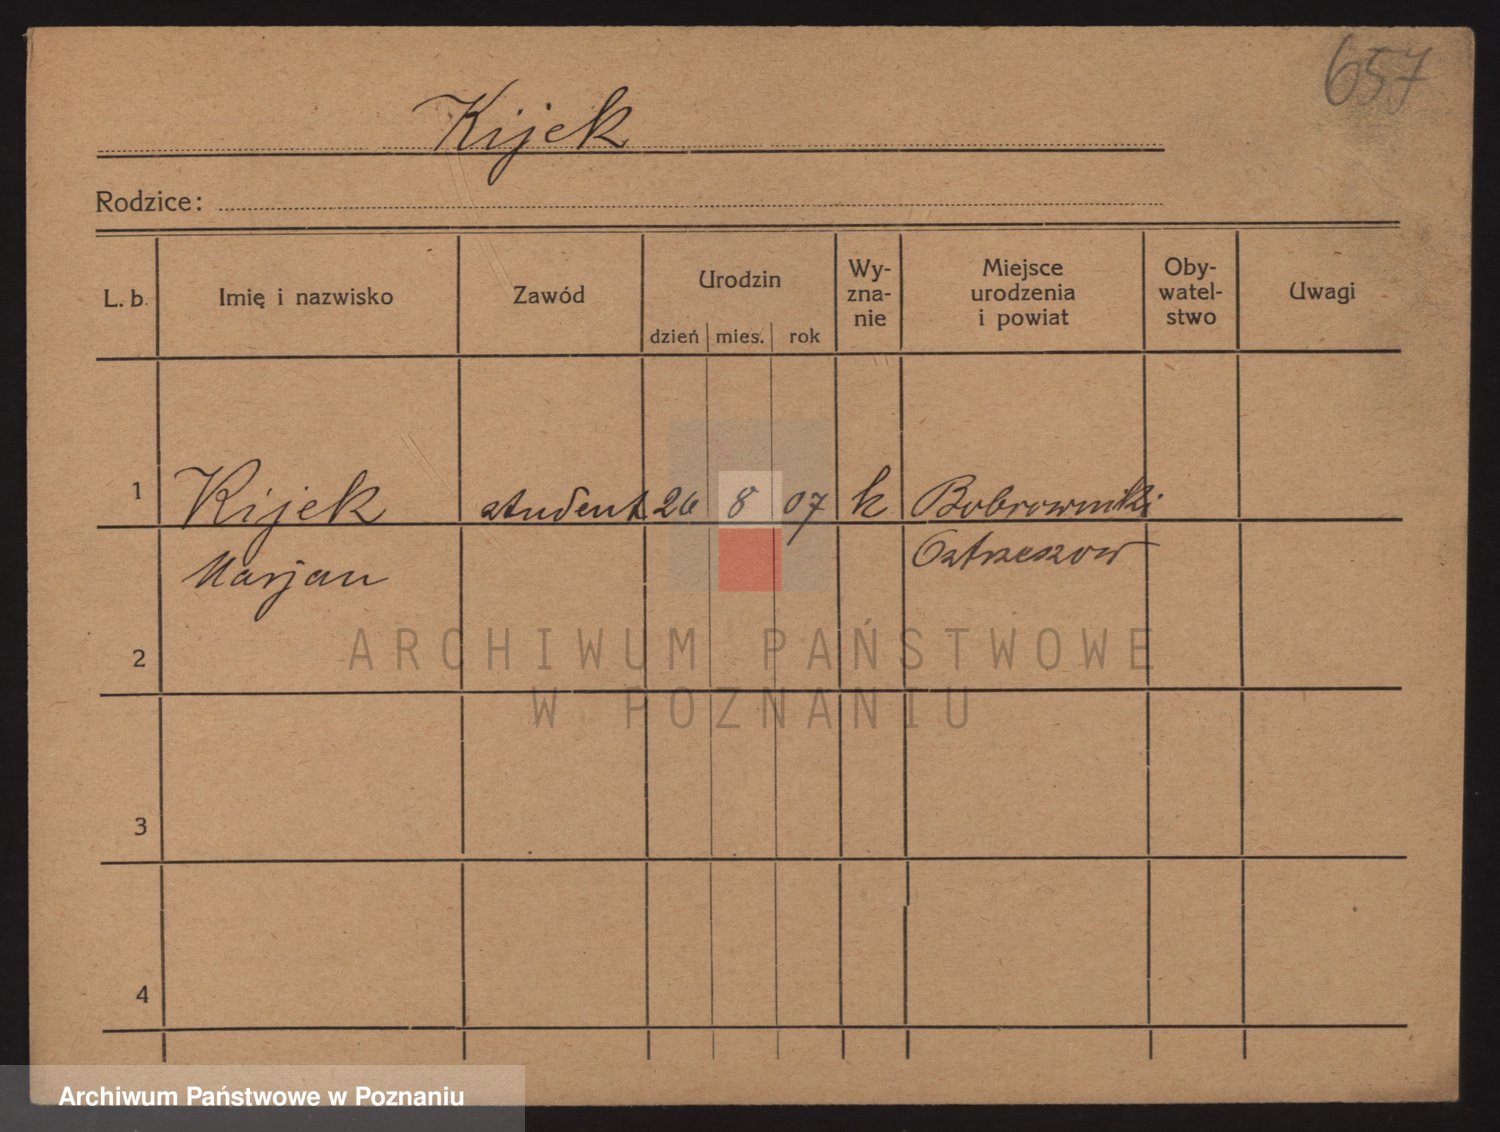 657
Kijek
Rodzice:
L. b. Imię i nazwisko Zawód Urodzin dzień mies. rok Wy-zna-nie Miejsce urodzenia i powiat Oby-watel-stwo Uwagi
1 Kijek student 26 8 07 k Bobrowniki
Marjan Ostrzeszow
2
ARCHIWUM PAŃSTWOWE
W POZNANIU
3
4
Archiwum Państwowe w Poznaniu